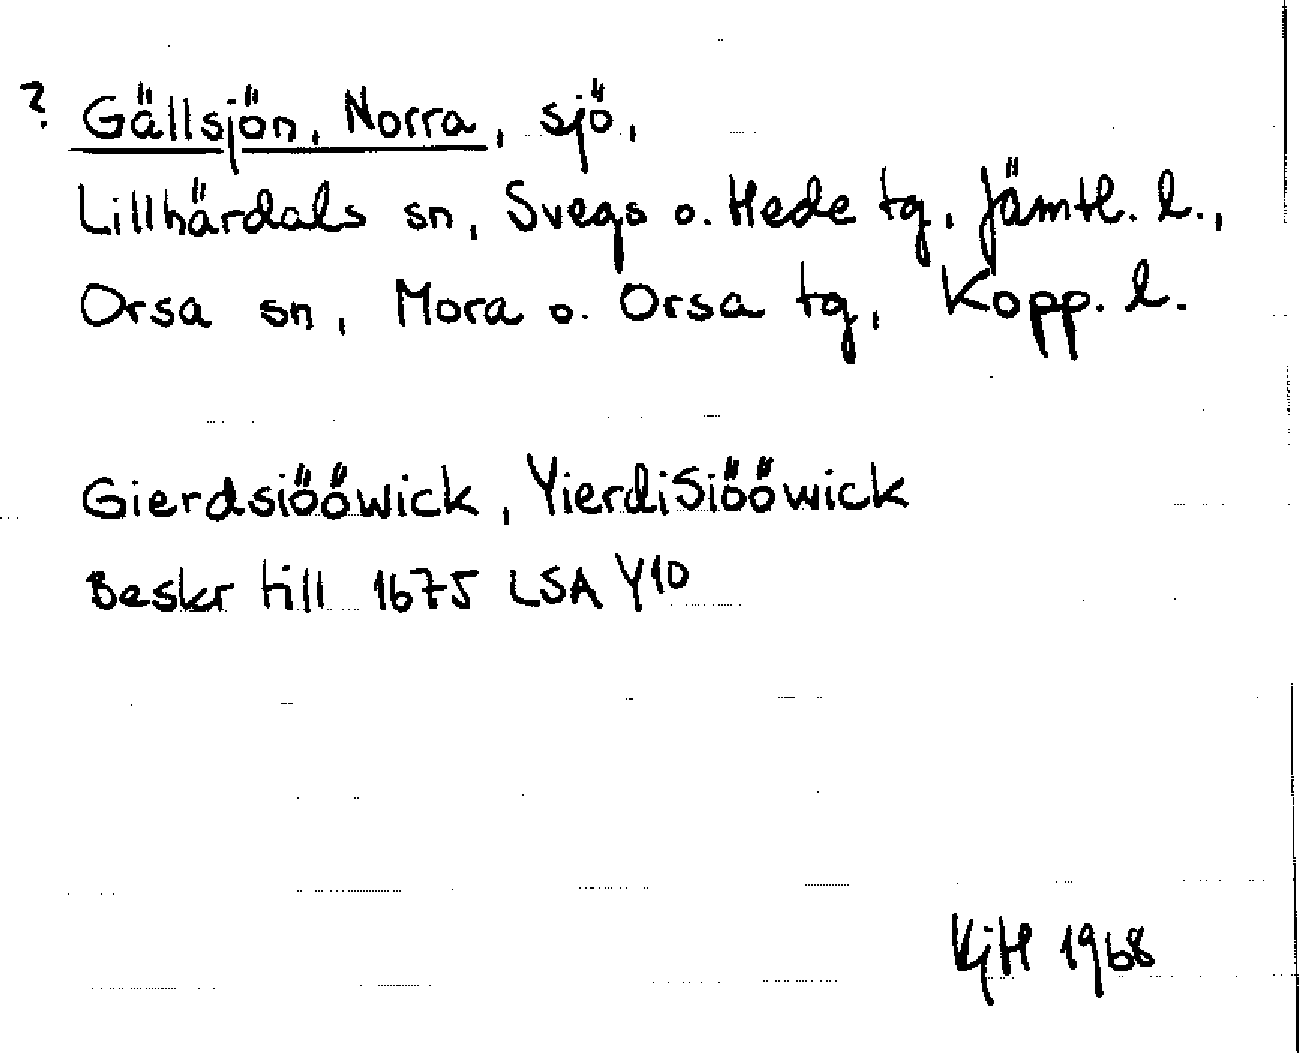 ? Gällsjön, Norra, sjö,
Lillhärdals sn, Svegs o. Hede tg, Jämtl. l.,
Orsa sn, Mora o. Orsa tg, Kopp. l.
Gierdsiööwick, YierdiSiööwick
Beskr till 1675 LSA Y10
KjH 1968